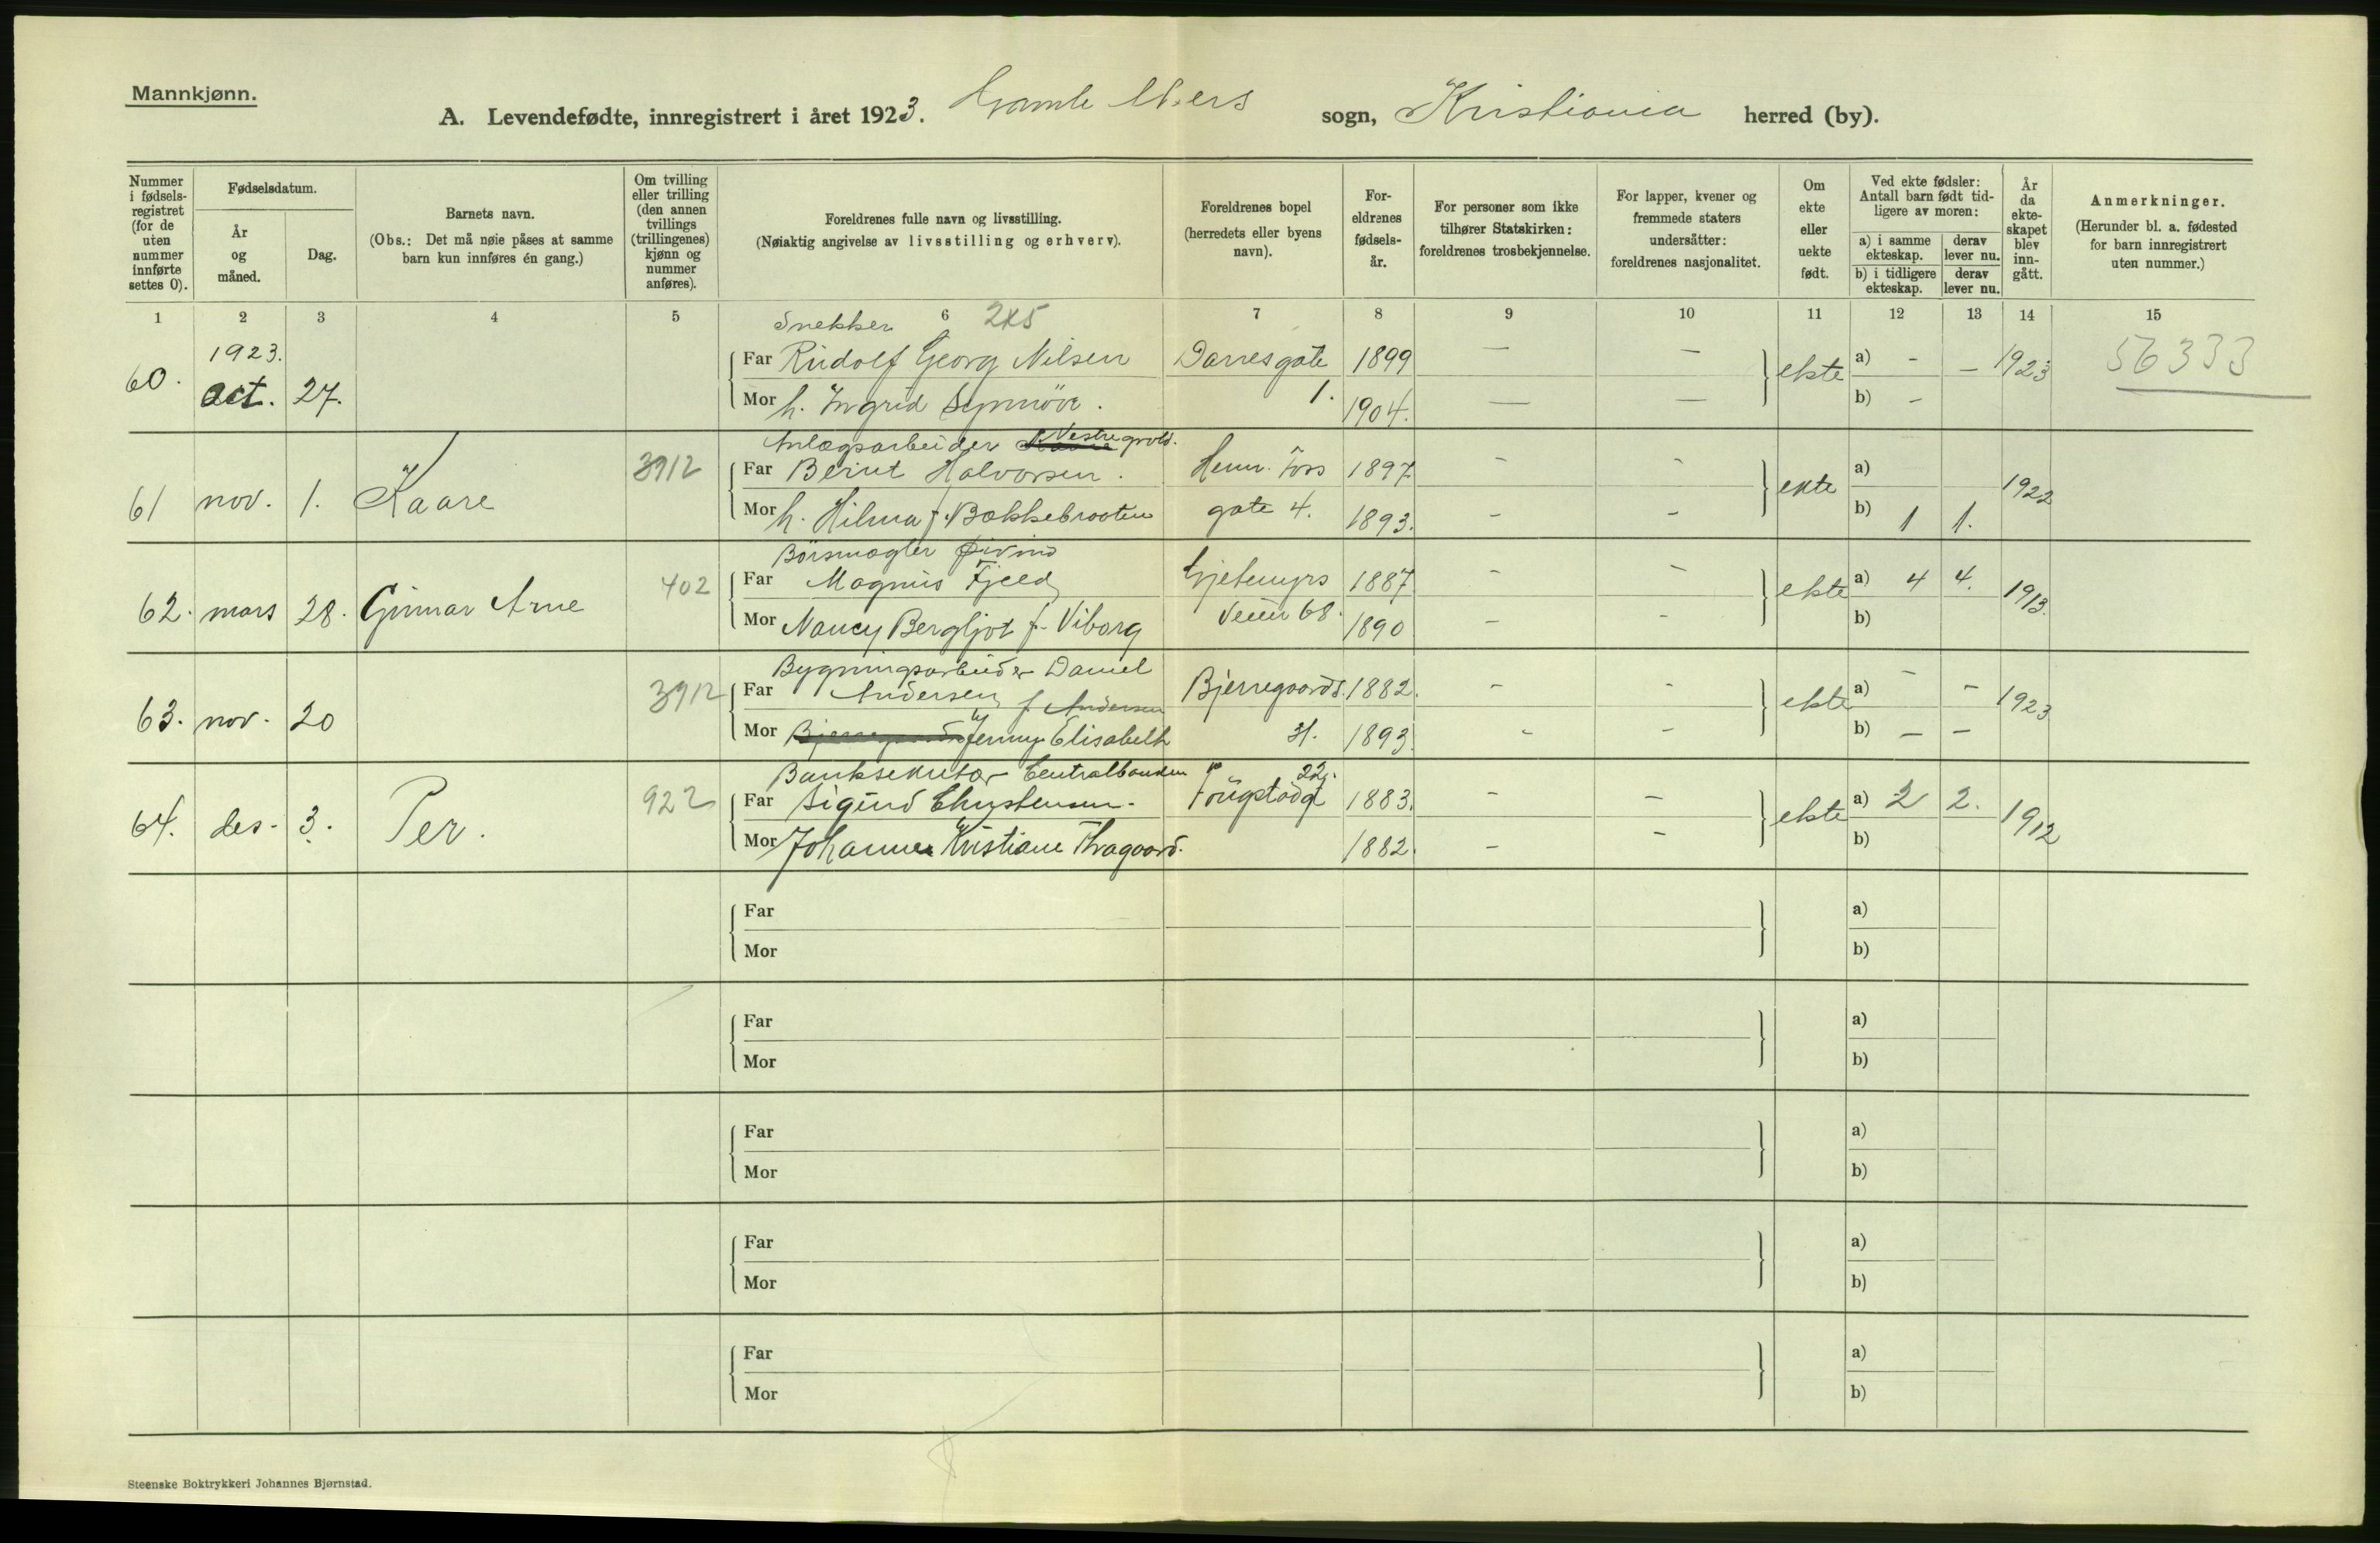 Mannkjønn.
A. Levendefødte, innregistrert i året 1923. Gamle Akers sogn, Kristiania herred (by).
Nummer i fødselsregistret (for de uten nummer innførte settes 0).
Fødselsdatum.
År og måned.
Dag.
Barnets navn.
(Obs.: Det må nøie påses at samme barn kun innføres én gang.)
Om tvilling eller trilling (den annen tvillings (trillingenes) kjønn og nummer anføres).
Foreldrenes fulle navn og livsstilling.
(Nøiaktig angivelse av livsstilling og erhverv).
Foreldrenes bopel (herredets eller byens navn).
Foreldrenes fødselsår.
For personer som ikke tilhører Statskirken: foreldrenes trosbekjennelse.
For lapper, kvener og fremmede staters undersåtter: foreldrenes nasjonalitet.
Om ekte eller uekte født.
Ved ekte fødsler: Antall barn født tidligere av moren:
a) i samme ekteskap. derav lever nu.
b) i tidligere ekteskap. derav lever nu.
År da ekteskapet blev inngått.
Anmerkninger.
(Herunder bl. a. fødested for barn innregistrert uten nummer.)
1 2 3 4 5 6 7 8 9 10 11 12 13 14 15
Snekker 2x5
1923.
60. oct. 27. Far Rudolf Georg Nilsen Darresgate 1899 — — ekte a) - - 1923 56333
Mor h. Ingrid Synnöve. 1. 1904. — — b) -
Anlægsarbeider Vestregrold.
61 nov. 1. Kaare 3912 Far Bernt Halvorsen. Henr. Ibs 1897 - - ekte a) 1922
Mor h. Hilma f. Bakkebraaten gate 4. 1893. - - b) 1 1.
Börsmægler Øivind
62. mars 28. Gunnar Arne 402 Far Magnus Fjeld Gjetemyrs 1887 - - ekte a) 4 4. 1913.
Mor Nancy Bergljot f. Viborg veien 68. 1890 - - b)
Bygningsarbeider Daniel
63. nov. 20 3912 Far Andersen f. Andersen Bjerregaards. 1882. - - ekte a) - - 1923
Mor Jenny Elisabeth 31. 1893. - - b) - -
Banksekretær Centralbanken
64. des. 3. Per. 922 Far Sigurd Christensen. Fougstadgt 22. 1883. - - ekte a) 2 2. 1912
Mor Johanne Kristiane Thragaard. 1882. - - b)
Far a)
Mor b)
Far a)
Mor b)
Far a)
Mor b)
Far a)
Mor b)
Far a)
Mor b)
Steenske Boktrykkeri Johannes Bjørnstad.